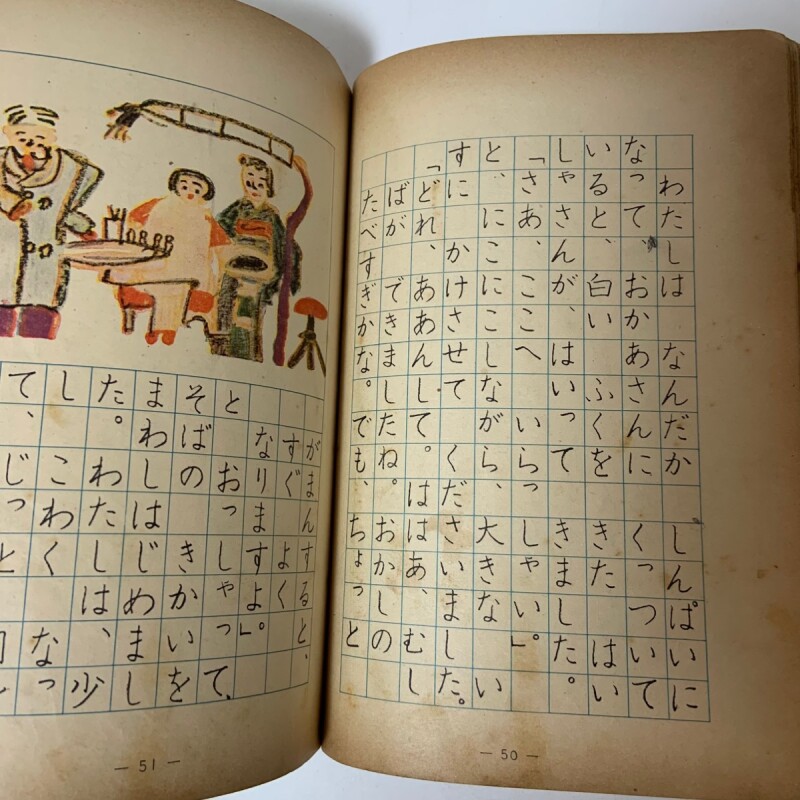 わたしは なんだか しんぱいに
なって、おかあさんに くっついて
いると、白い ふくを きた はい
しゃさんが、はいって きました。
「さあ、ここへ いらっしゃい」。
と、にこにこしながら、大きな い
すに かけさせて くださいました。
「どれ、ああんして。ははあ、むし
ばが できましたね。おかしの
たべすぎかな。でも、ちょっと
— 50 —
がまんすると、
すぐ よく
なりますよ」。
と おっしゃって、
そばの きかいを
まわしはじめまし
た。わたしは、少
し こわく なっ
て、じっと
— 51 —